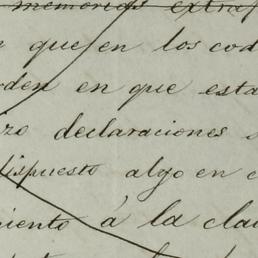 memorias extra
que en los cod
rden en que esta
ro declaraciones s
dispuesto algo en c
miento á la cla